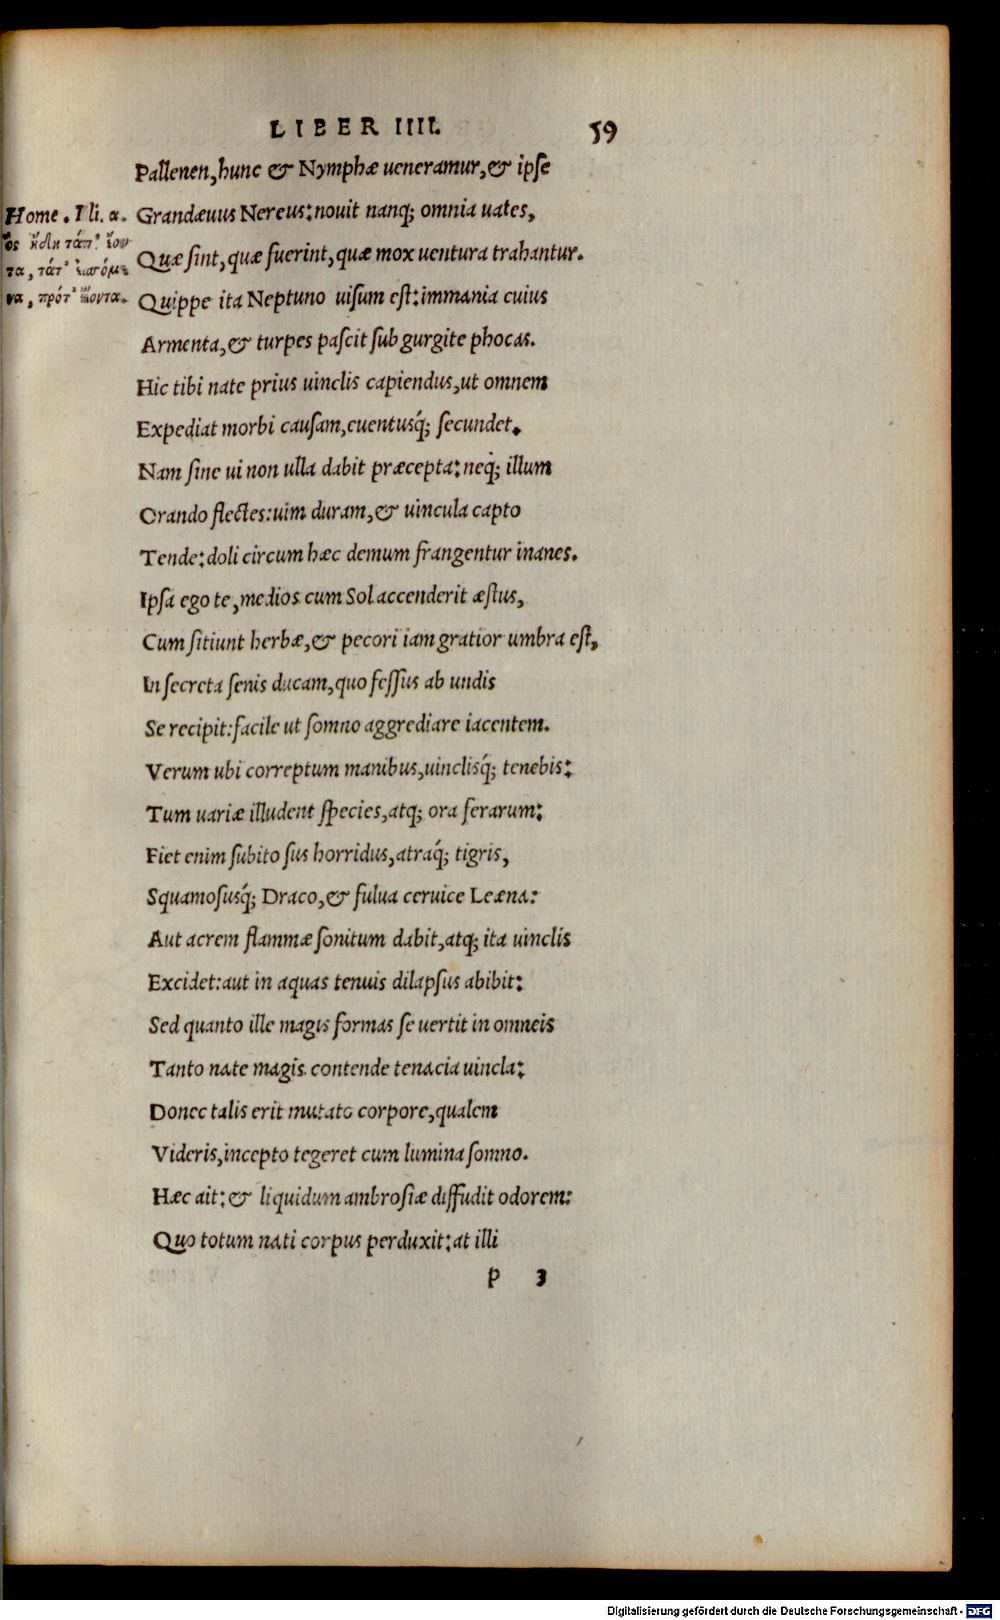 LIBER IIII. 59
Pallenen, hunc & Nymphæ ueneramur, & ipse
Home. Ili. α. Grandæuus Nereus: nouit nanq; omnia uates,
Quæ sint, quæ fuerint, quæ mox uentura trahantur.
Quippe ita Neptuno uisum est: immania cuius
Armenta, & turpes pascit sub gurgite phocas.
Hic tibi nate prius uinclis capiendus, ut omnem
Expediat morbi causam, euentusq́; secundet.
Nam sine ui non ulla dabit præcepta: neq; illum
Orando flectes: uim duram, & uincula capto
Tende: doli circum hæc demum frangentur inanes.
Ipsa ego te, medios cum Sol accenderit æstus,
Cum sitiunt herbæ, & pecori iam gratior umbra est,
In secreta senis ducam, quo fessus ab undis
Se recipit: facile ut somno aggrediare iacentem.
Verum ubi correptum manibus, uinclisq́; tenebis:
Tum uariæ illudent species, atq; ora ferarum:
Fiet enim subito sus horridus, atraq́; tigris,
Squamosusq́; Draco, & fulua ceruice Leæna:
Aut acrem flammæ sonitum dabit, atq; ita uinclis
Excidet: aut in aquas tenuis dilapsus abibit:
Sed quanto ille magis formas se uertit in omneis
Tanto nate magis contende tenacia uincla:
Donec talis erit mutato corpore, qualem
Videris, incepto tegeret cum lumina somno.
Hæc ait: & liquidum ambrosiæ diffudit odorem:
Quo totum nati corpus perduxit: at illi
p 3
Digitalisierung gefördert durch die Deutsche Forschungsgemeinschaft - DFG